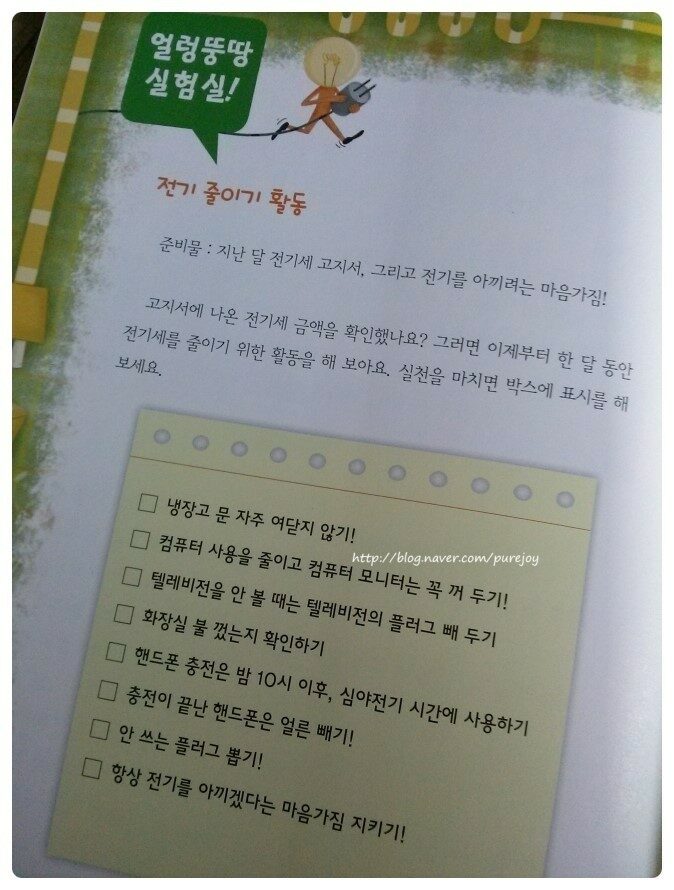 얼렁뚱땅
실험실!
전기 줄이기 활동
준비물 : 지난 달 전기세 고지서, 그리고 전기를 아끼려는 마음가짐!
고지서에 나온 전기세 금액을 확인했나요? 그러면 이제부터 한 달 동안
전기세를 줄이기 위한 활동을 해 보아요. 실천을 마치면 박스에 표시를 해
보세요.
냉장고 문 자주 여닫지 않기!
컴퓨터 사용을 줄이고 컴퓨터 모니터는 꼭 꺼 두기!
http://blog.naver.com/purejoy
텔레비전을 안 볼 때는 텔레비전의 플러그 빼 두기
화장실 불 껐는지 확인하기
핸드폰 충전은 밤 10시 이후, 심야전기 시간에 사용하기
충전이 끝난 핸드폰은 얼른 빼기!
안 쓰는 플러그 뽑기!
항상 전기를 아끼겠다는 마음가짐 지키기!